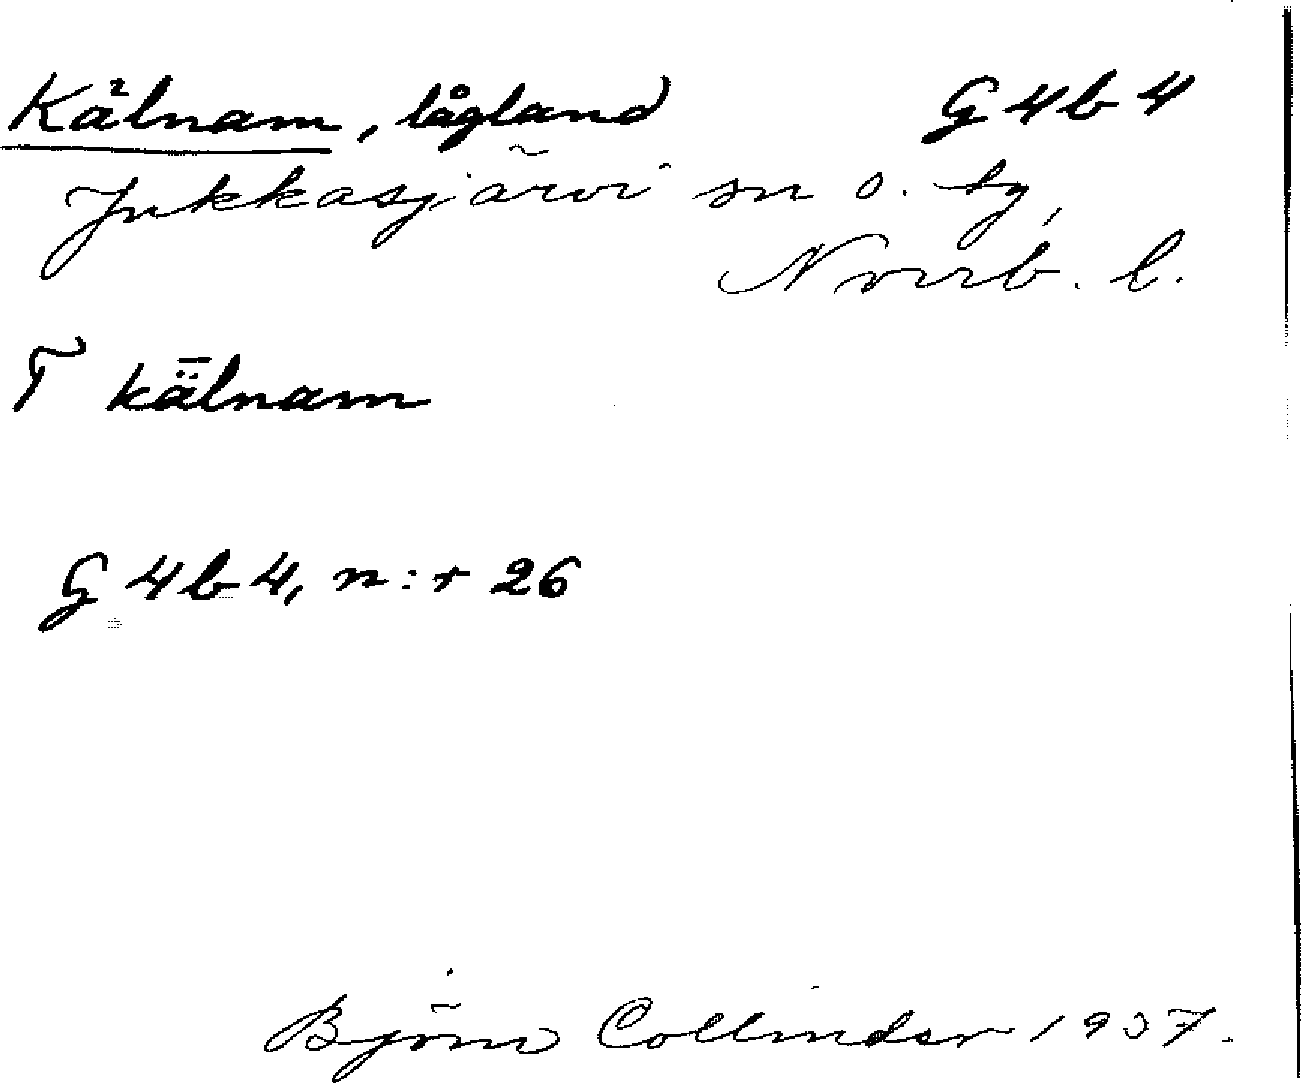 Kälnam, lågland G 4 b 4
Jukkasjärvi sn o. tg,
Norrb. l.
T kǟlnam
G 4 b 4, n:r 26
Björn Collinder 1937.